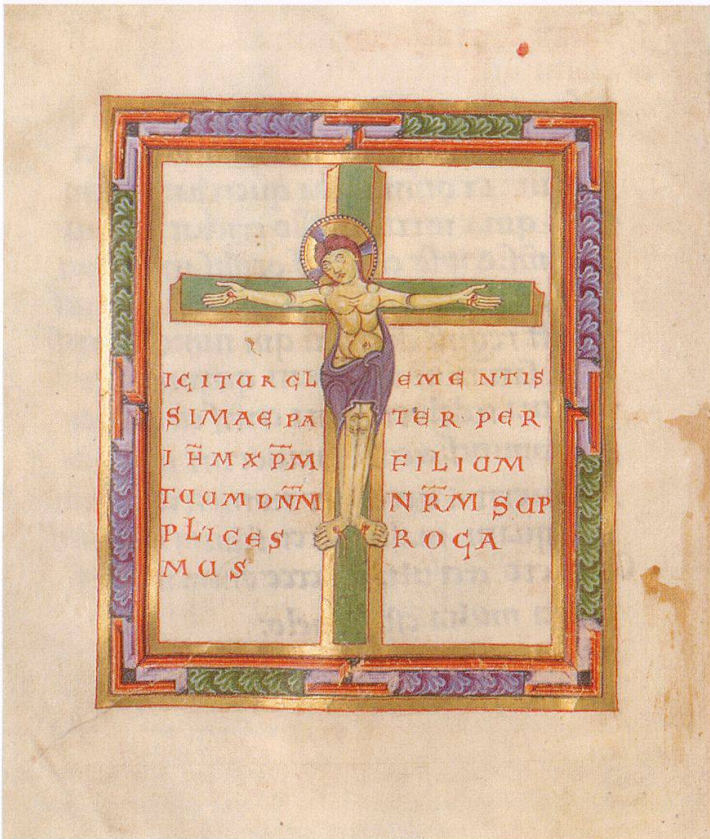 IGITUR CLEMENTIS
SIMAE PATER PER
IH̄M XP̄M FILIUM
TUUM DN̄M N̄R̄M SUP
PLICES ROGA
MUS